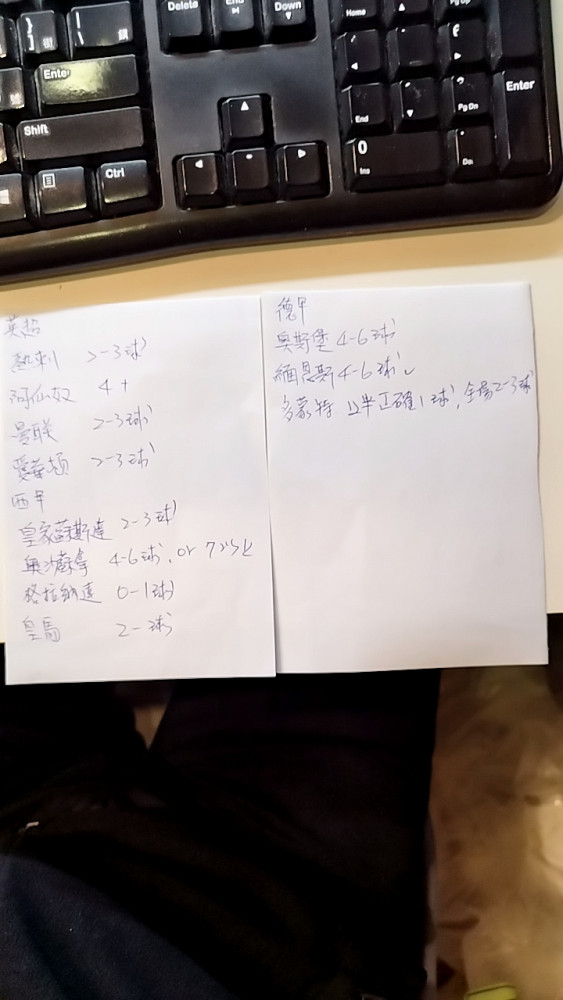 Delete
End
Down
Home
Pg Up
Enter
Shift
Ctrl
End
Pg Dn
Enter
0
Ins
英超
熱刺 2-3球
阿仙奴 4+
曼聯 2-3球
愛華頓 2-3球
西甲
皇家蘇斯達 2-3球
奧沙蘇拿 4-6球, or 7以上
格拉納達 0-1球
皇馬 2-3球
德甲
奧斯堡 4-6球
緬恩斯 4-6球
多蒙特 上半正確1球, 全場2-3球